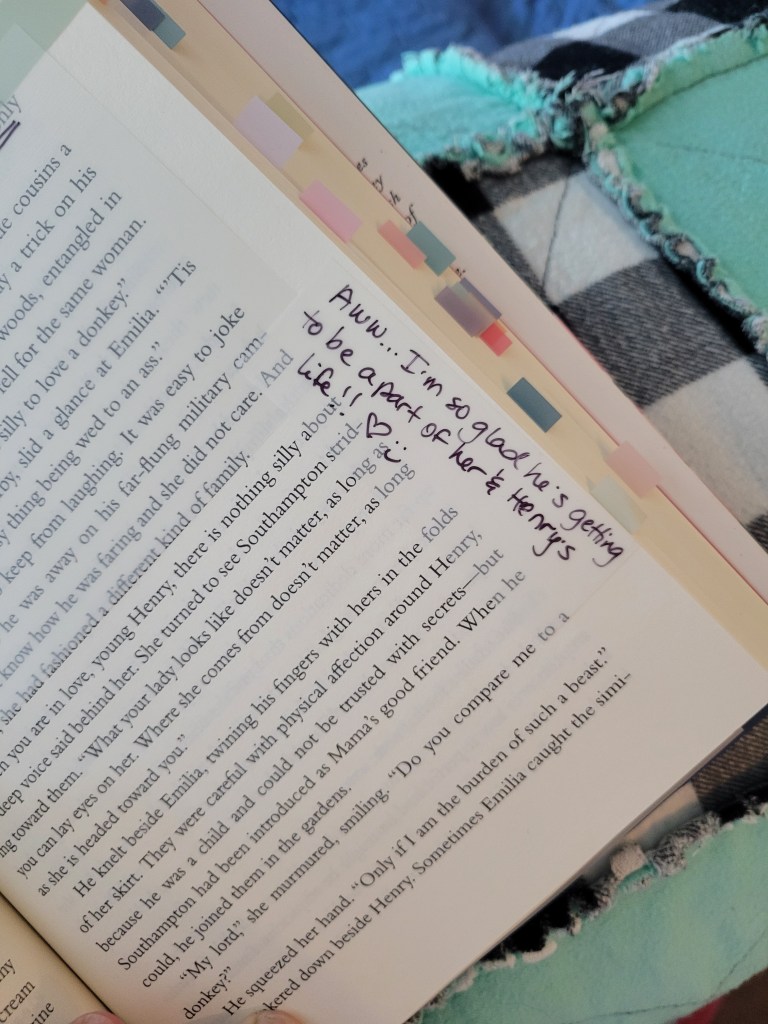 only
cousins a
a trick on his
woods, entangled in
fell for the same woman.
silly to love a donkey."
slid a glance at Emilia. "'Tis
thing being wed to an ass."
keep from laughing. It was easy to joke
he was away on his far-flung military cam-
know how he was faring and she did not care. And
she had fashioned a different kind of family.
you are in love, young Henry, there is nothing silly about
deep voice said behind her. She turned to see Southampton strid-
ing toward them. "What your lady looks like doesn't matter, as long as
you can lay eyes on her. Where she comes from doesn't matter, as long
as she is headed toward you."
He knelt beside Emilia, twining his fingers with hers in the folds
of her skirt. They were careful with physical affection around Henry,
because he was a child and could not be trusted with secrets—but
Southampton had been introduced as Mama's good friend. When he
could, he joined them in the gardens.
"My lord," she murmured, smiling. "Do you compare me to a
donkey?"
He squeezed her hand. "Only if I am the burden of such a beast."
kered down beside Henry. Sometimes Emilia caught the simi-
Aww... I'm so glad he's getting
to be a part of her & Henry's
life!! ♡ :)
of
cream